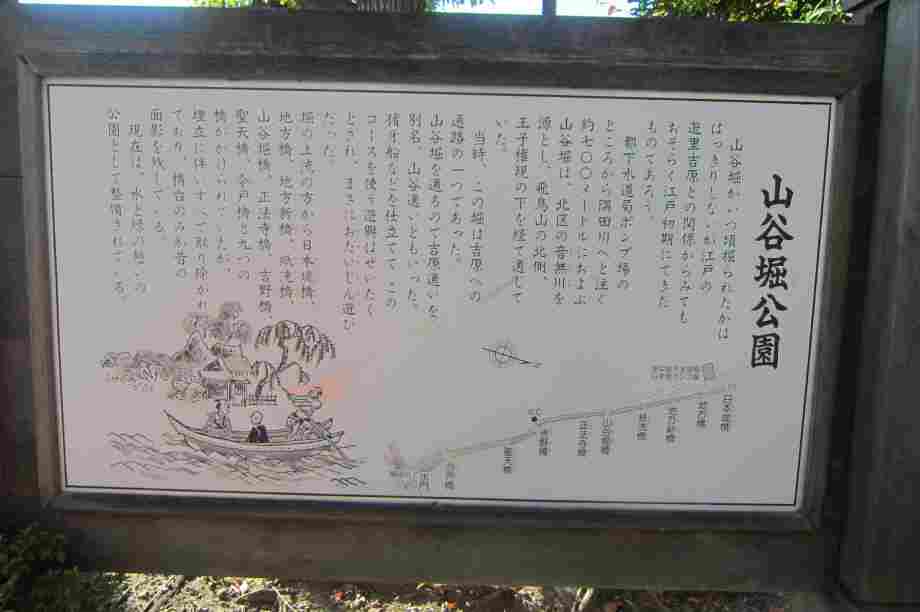 山谷堀公園
山谷堀がいつ頃掘られたかは
はっきりしないが江戸の
遊里吉原との関係からみても
おそらく江戸初期にできた
ものであろう
都下水道局ポンプ場の
ところから隅田川へと注ぐ
約七〇〇メートルにおよぶ
山谷堀は、北区の音無川を
源とし、飛鳥山の北側、
王子権現の下を経て通じて
いた。
当時、この堀は吉原への
通路の一つであった。
山谷堀を通るので吉原通いを、
別名、山谷通いともいった。
猪牙船などを仕立ててこの
コースを使う遊興はぜいたく
とされ、まさにおだいじん遊び
だった。
堀の上流の方から日本堤橋、
地方橋、地方新橋、紙洗橋、
山谷堀橋、正法寺橋、吉野橋、
聖天橋、今戸橋と九つの
橋がかけられていたが、
埋立に伴いすべて取り除かれ
ており、橋台のみが昔の
面影を残している。
現在は、水と緑の憩いの
公園として整備されている。
日本堤橋
地方橋
地方新橋
紙洗橋
山谷堀橋
正法寺橋
吉野橋
聖天橋
今戸橋
水門